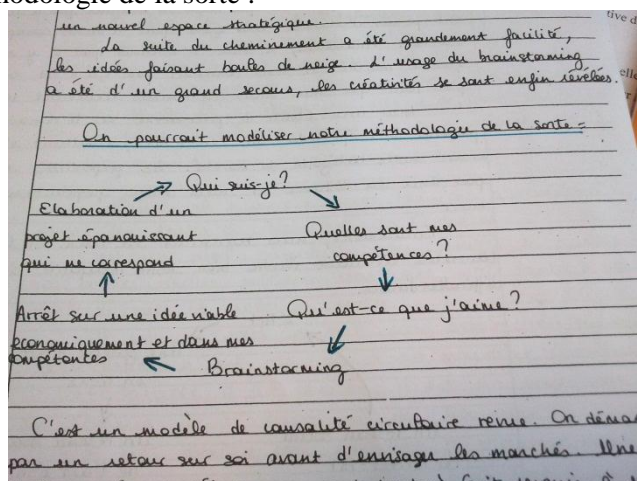 nodologie de la sorte :
un nouvel espace stratégique.
La suite du cheminement a été grandement facilité,
les idées faisant boules de neige. L'usage du brainstorming
a été d'un grand secours, les créativités se sont enfin révélées.
On pourrait modéliser notre méthodologie de la sorte =
Qui suis-je ?
Elaboration d'un
projet épanouissant
qui me correspond
Quelles sont mes
compétences ?
Qu'est-ce que j'aime ?
Brainstorming
Arrêt sur une idée viable
économiquement et dans mes
compétentes
C'est un modèle de causalité circulaire revue. On démar
par un retour sur soi avant d'envisager les marchés. Une